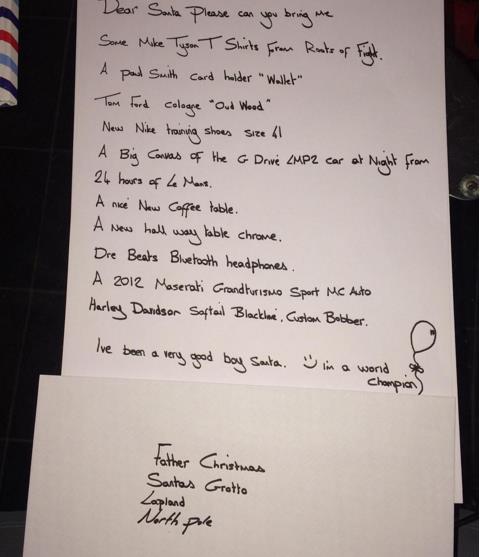 Dear Santa Please can you bring me
Some Mike Tyson T Shirts From Roots of Fight.
A paul Smith card holder "Wallet"
Tom Ford cologne "Oud Wood"
New Nike training shoes size 41
A Big Canvas of the G Drive LMP2 car at Night From
24 hours of Le Mans.
A nice New Coffee table.
A New hall way table chrome.
Dre Beats Bluetooth headphones.
A 2012 Maserati Grandturismo Sport MC Auto
Harley Davidson Softail Blackline, Custom Bobber.
Ive been a very good boy Santa. im a world
Champion
Father Christmas
Santas Grotto
Lapland
North pole